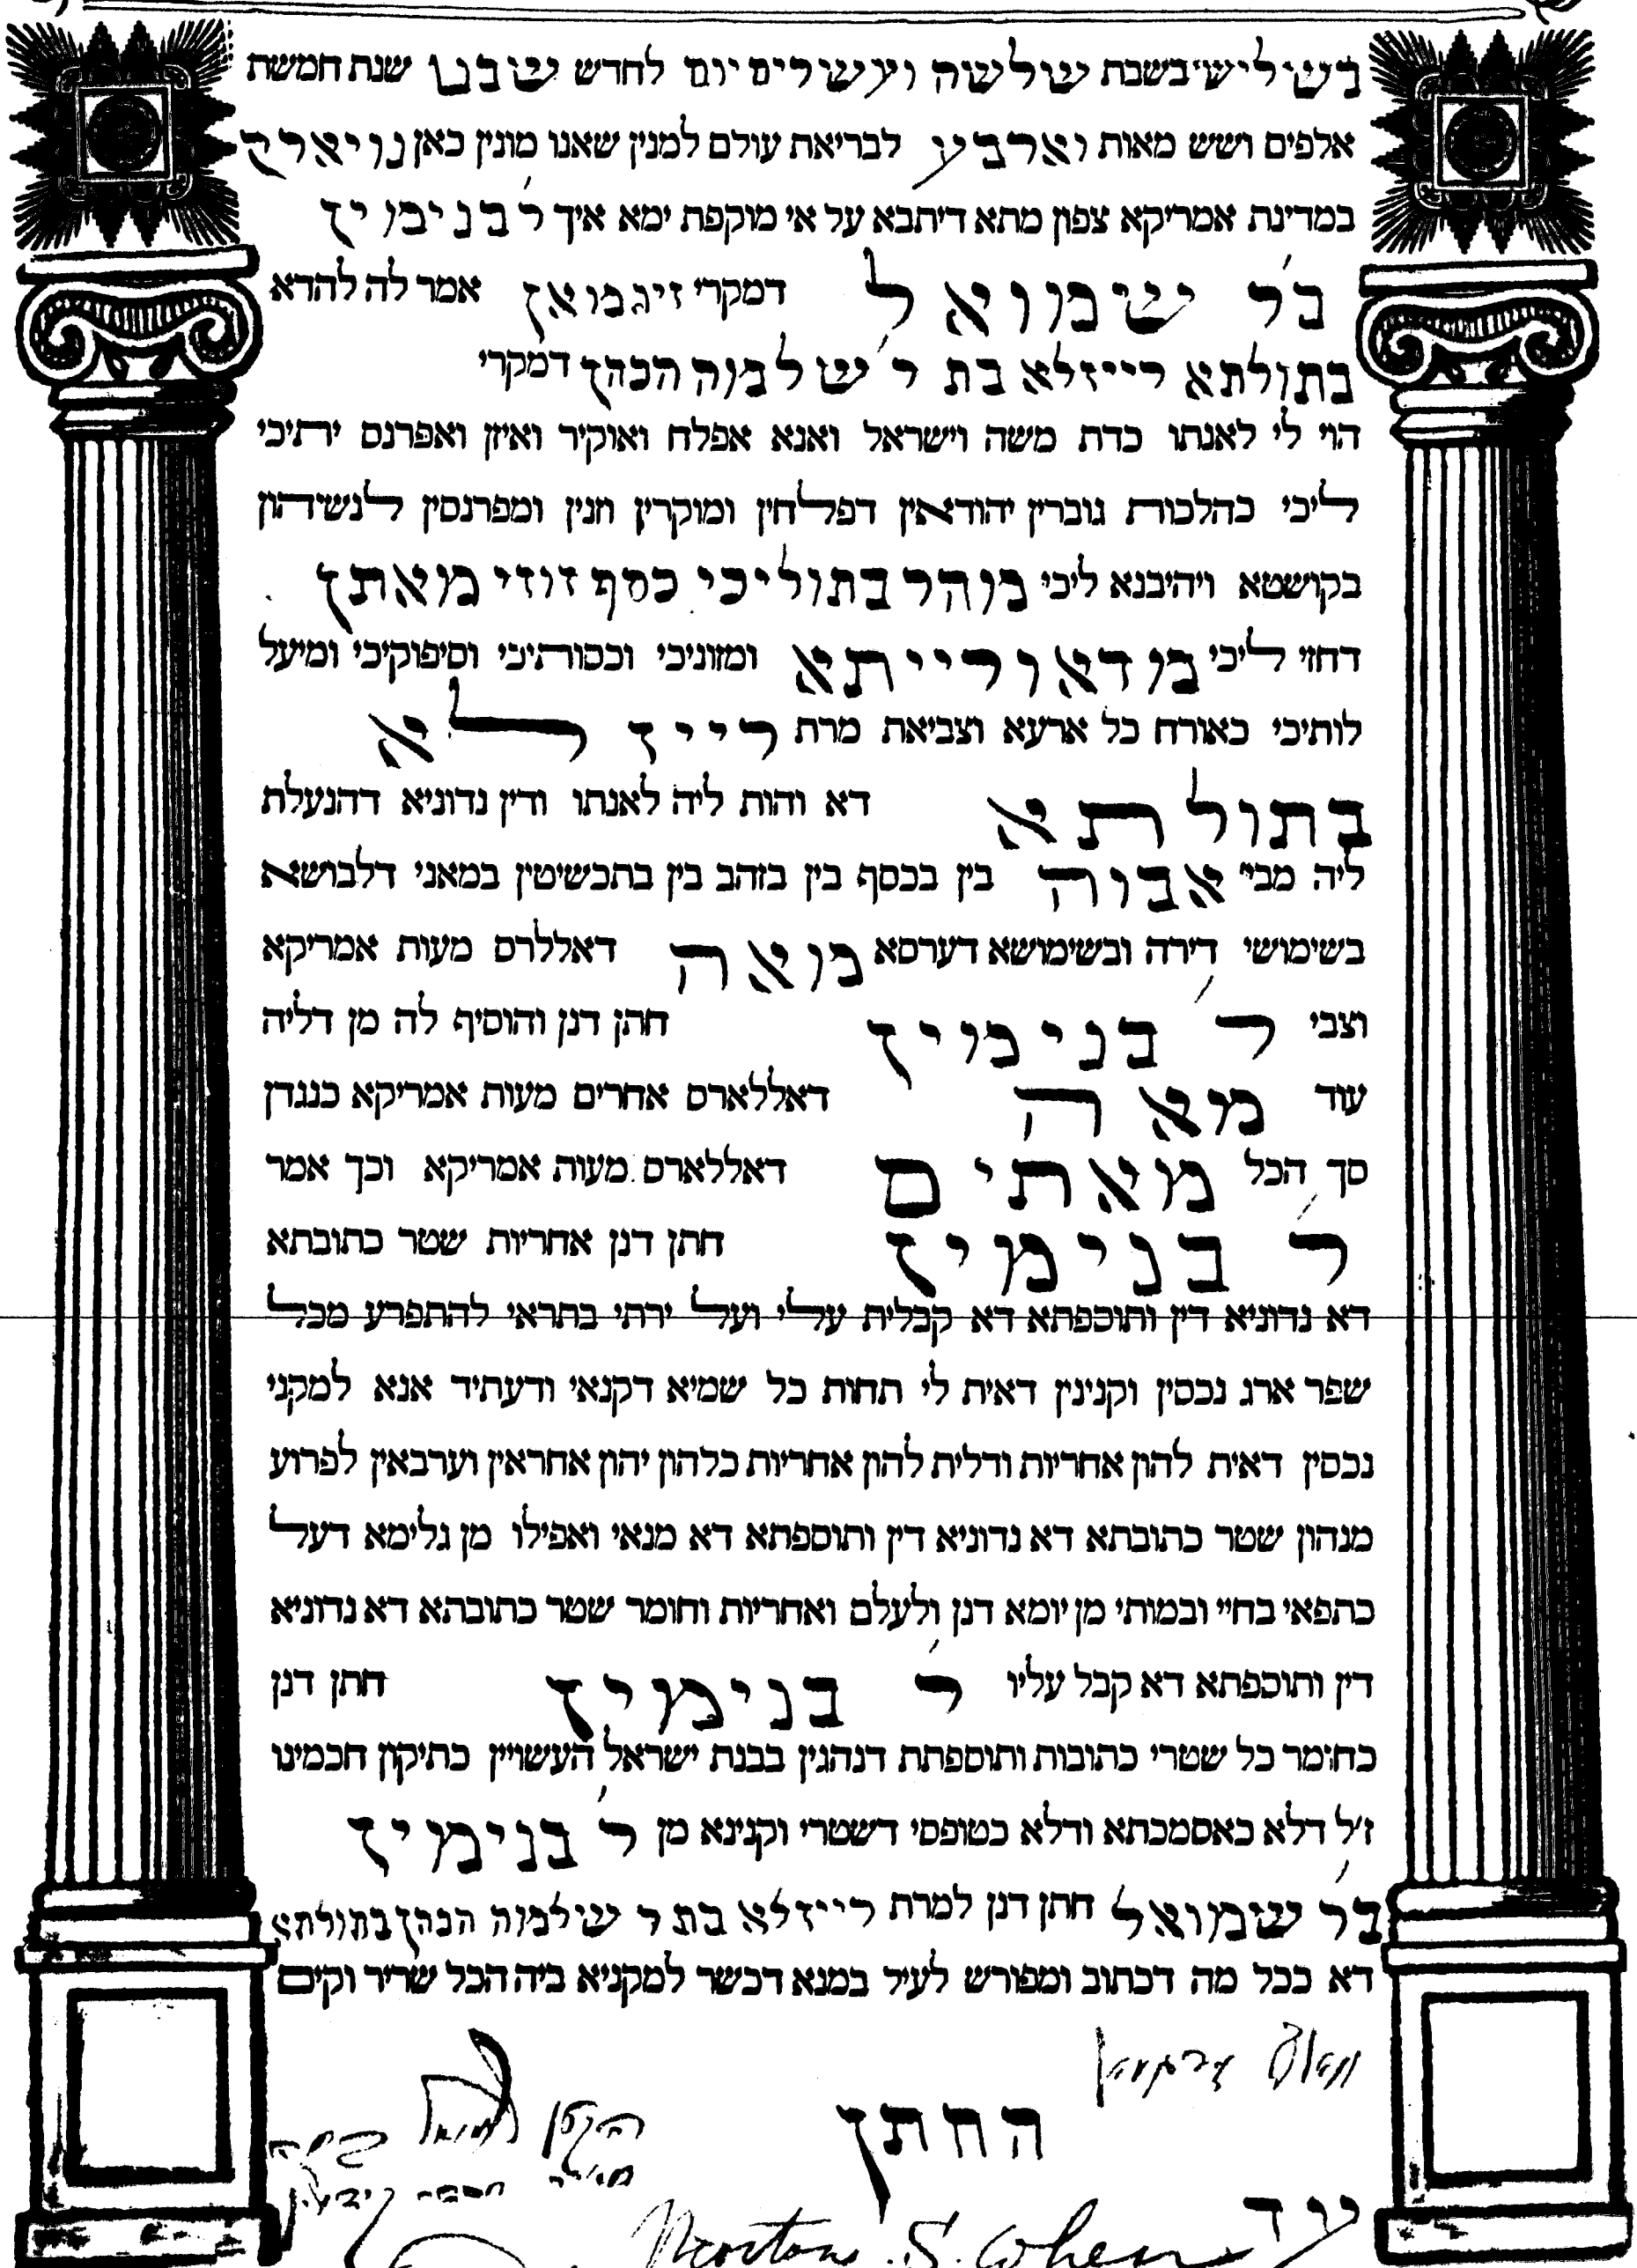 בשלישי בשבת שלשה ועשרים יום לחדש שבט שנת חמשת
אלפים ושש מאות וארבע לבריאת עולם למנין שאנו מונין כאן נויארק
במדינת אמריקא צפון מתא דיתבא על אי מוקפת ימא איך ר' בנימין
בר שמואל דמקרי זיגמאן אמר לה להדא
בתולתא רייזלא בת ר' שלמה הכהן דמקרי
הוי לי לאנתו כדת משה וישראל ואנא אפלח ואוקיר ואיזן ואפרנס יתיכי
ליכי כהלכות גוברין יהודאין דפלחין ומוקרין וזנין ומפרנסין לנשיהון
בקושטא ויהיבנא ליכי מוהר בתוליכי כסף זוזי מאתן
דחזי ליכי מדאורייתא ומזוניכי וכסותיכי וסיפוקיכי ומיעל
לותיכי כאורח כל ארעא וצביאת מרת רייזלא
בתולתא דא והות ליה לאנתו ודין נדוניא דהנעלת
ליה מבי אבוה בין בכסף בין בזהב בין בתכשיטין במאני דלבושא
בשימושי דירה ובשימושא דערסא מאה דאללרס מעות אמריקא
וצבי ר' בנימין חתן דנן והוסיף לה מן דליה
עוד מאה דאללארס אחרים מעות אמריקא כנגדן
סך הכל מאתים דאללארס מעות אמריקא וכך אמר
ר' בנימין חתן דנן אחריות שטר כתובתא
דא נדוניא דין ותוספתא דא קבלית עלי ועל ירתי בתראי להתפרע מכל
שפר ארג נכסין וקנינין דאית לי תחות כל שמיא דקנאי ודעתיד אנא למקני
נכסין דאית להון אחריות ודלית להון אחריות כלהון יהון אחראין וערבאין לפרוע
מנהון שטר כתובתא דא נדוניא דין ותוספתא דא מנאי ואפילו מן גלימא דעל
כתפאי בחיי ובמותי מן יומא דנן ולעלם ואחריות וחומר שטר כתובתא דא נדוניא
דין ותוספתא דא קבל עליו ר' בנימין חתן דנן
כחומר כל שטרי כתובות ותוספתת דנהגין בבנת ישראל העשויין כתיקון חכמינו
ז"ל דלא כאסמכתא ודלא כטופסי דשטרי וקנינא מן ר' בנימין
בר שמואל חתן דנן למרת רייזלא בת ר שלמה הכהן בתולתא
דא ככל מה דכתוב ומפורש לעיל במנא דכשר למקניא ביה הכל שריר וקים
החתן
הקטן
עד
Morton S. Cohen